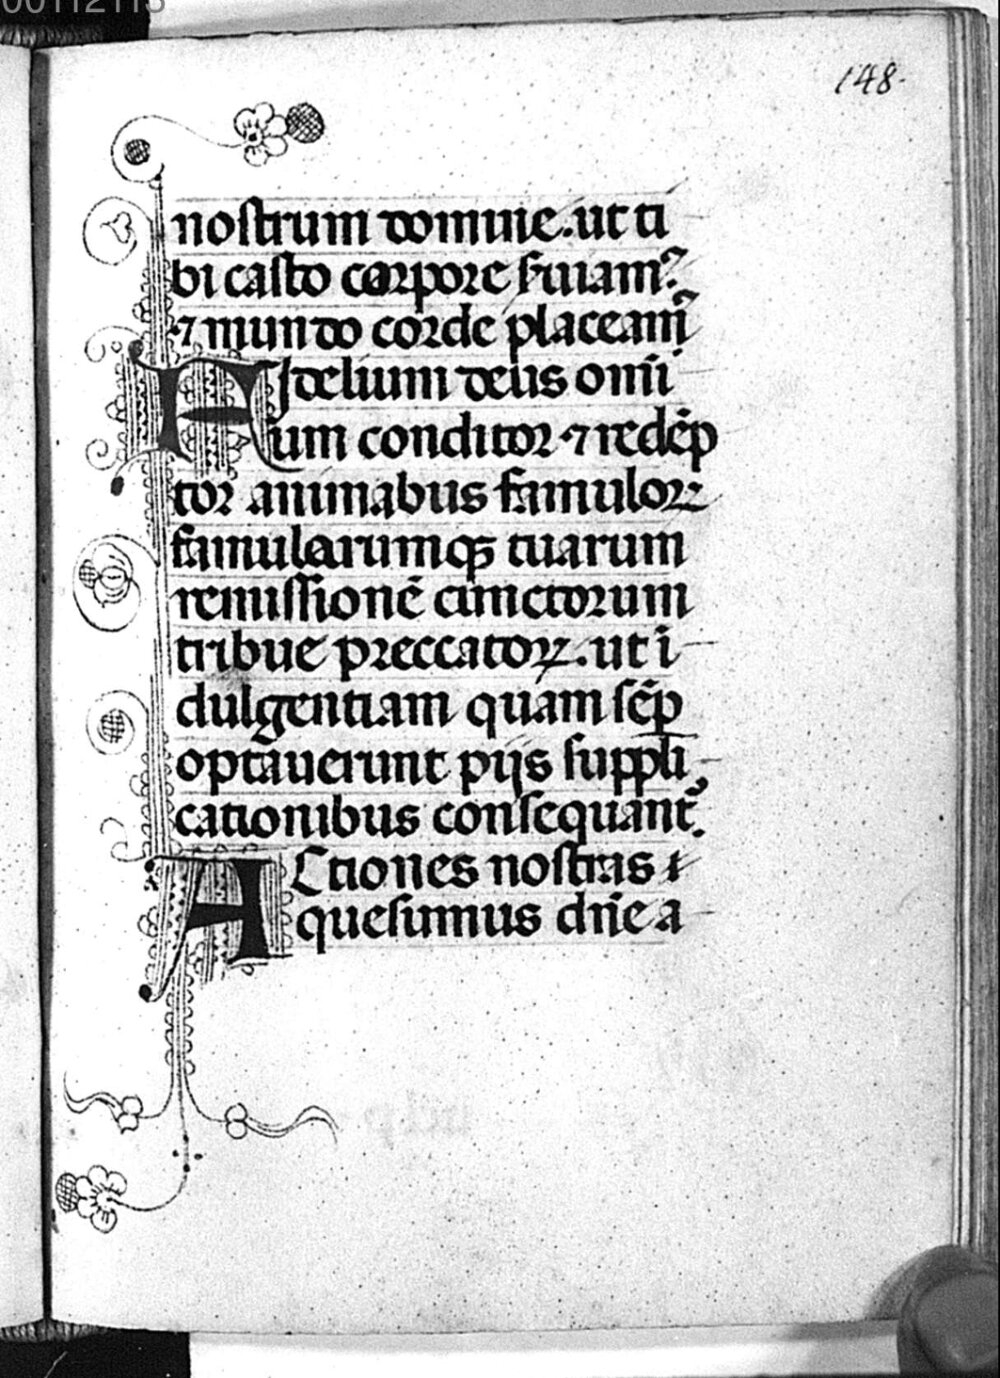 00112113
148.
nostrum domine. ut ti
bi casto corpore ẜuiamꝰ
⁊ mundo corde placeam̃
FIdelium deus omni
um conditor ⁊ redẽp
tor animabus famuloꝝ
famularumqꝫ tuarum
remissionẽ cunctorum
tribue preccatoꝝ. ut ĩ
dulgentiam quam sẽp
optauerunt pijs suppli
cationibus consequant᷑.
ACtiones nostras
quesumus dñe a